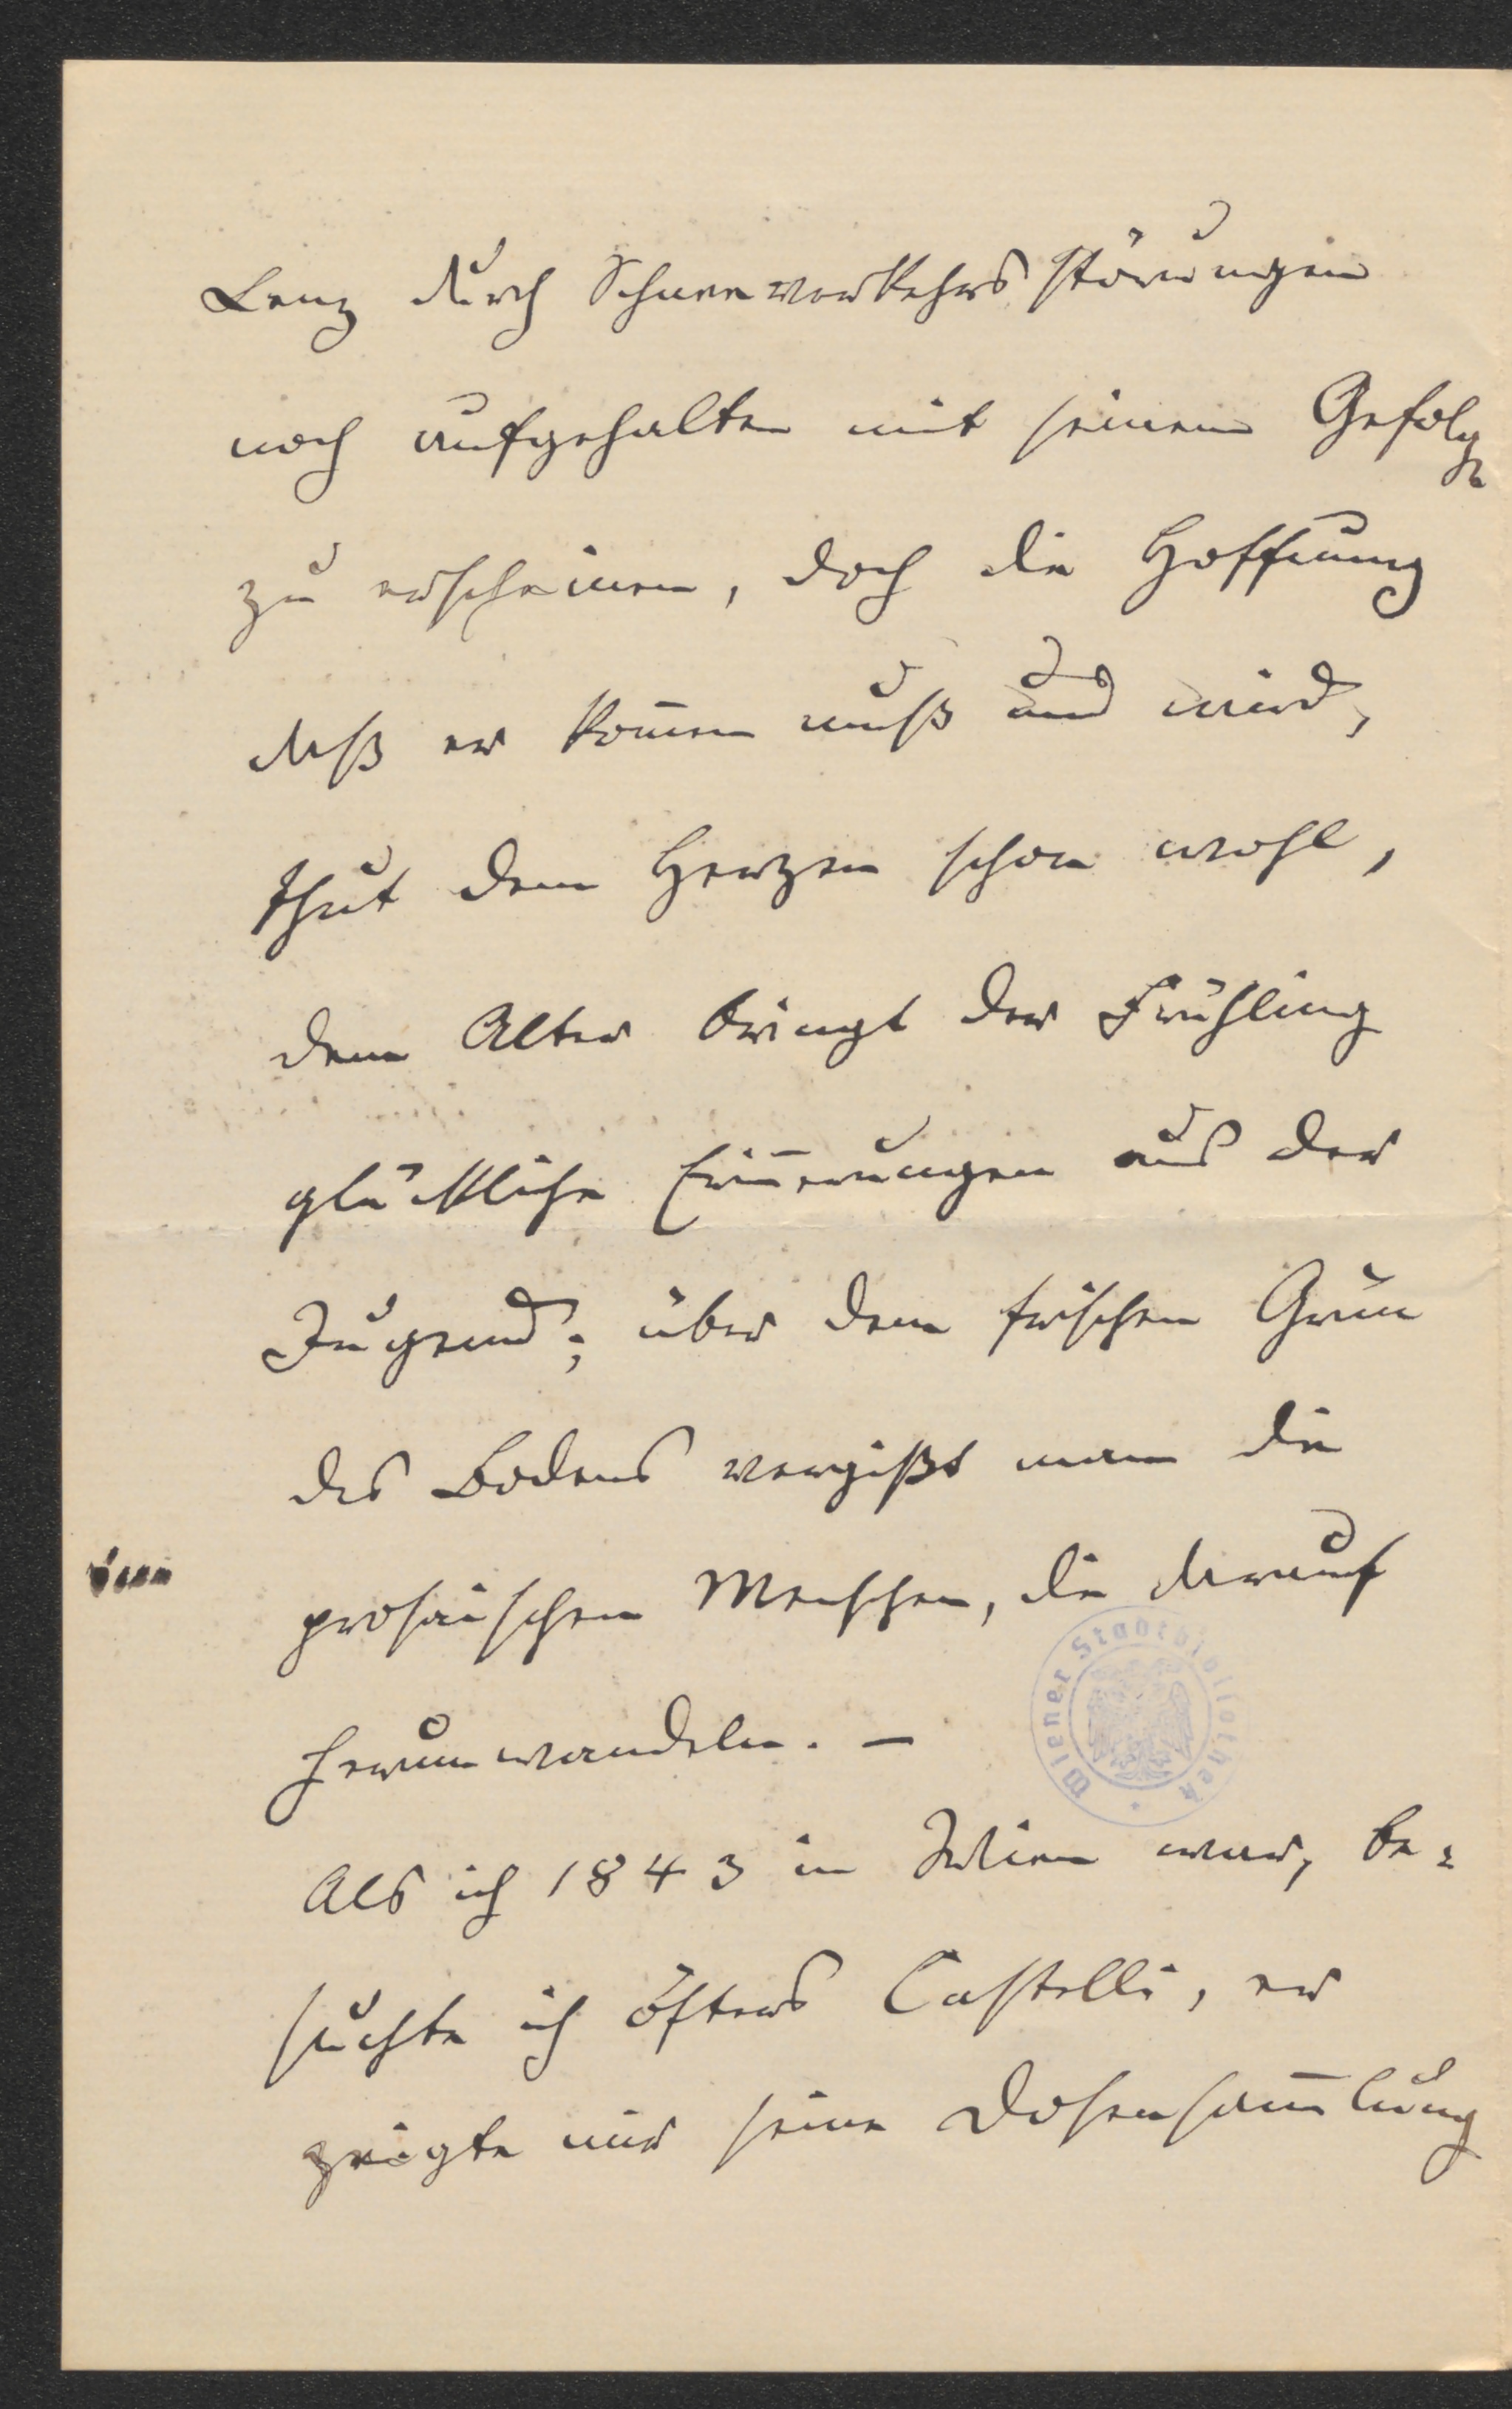 Lenz durch Schneeverkehrsstörungen
noch aufgehalten mit seinem Gefolge
zu erscheinen, doch die Hoffnung
daß er kom̄en muß und wird,
thut dem Herzen schon wohl,
dem Alter bringt der Frühling
glückliche Erin̄erungen aus der
Jugend; über dem frischen Grün
des Bodens vergißt man die
prosaischen Menschen, die darauf
herumwandeln. –
Als ich 1843 in Wien war, be-
suchte ich öfters Castelli, er
zeigte mir seine Dosensam̄lung
Wiener Stadtbibliothek